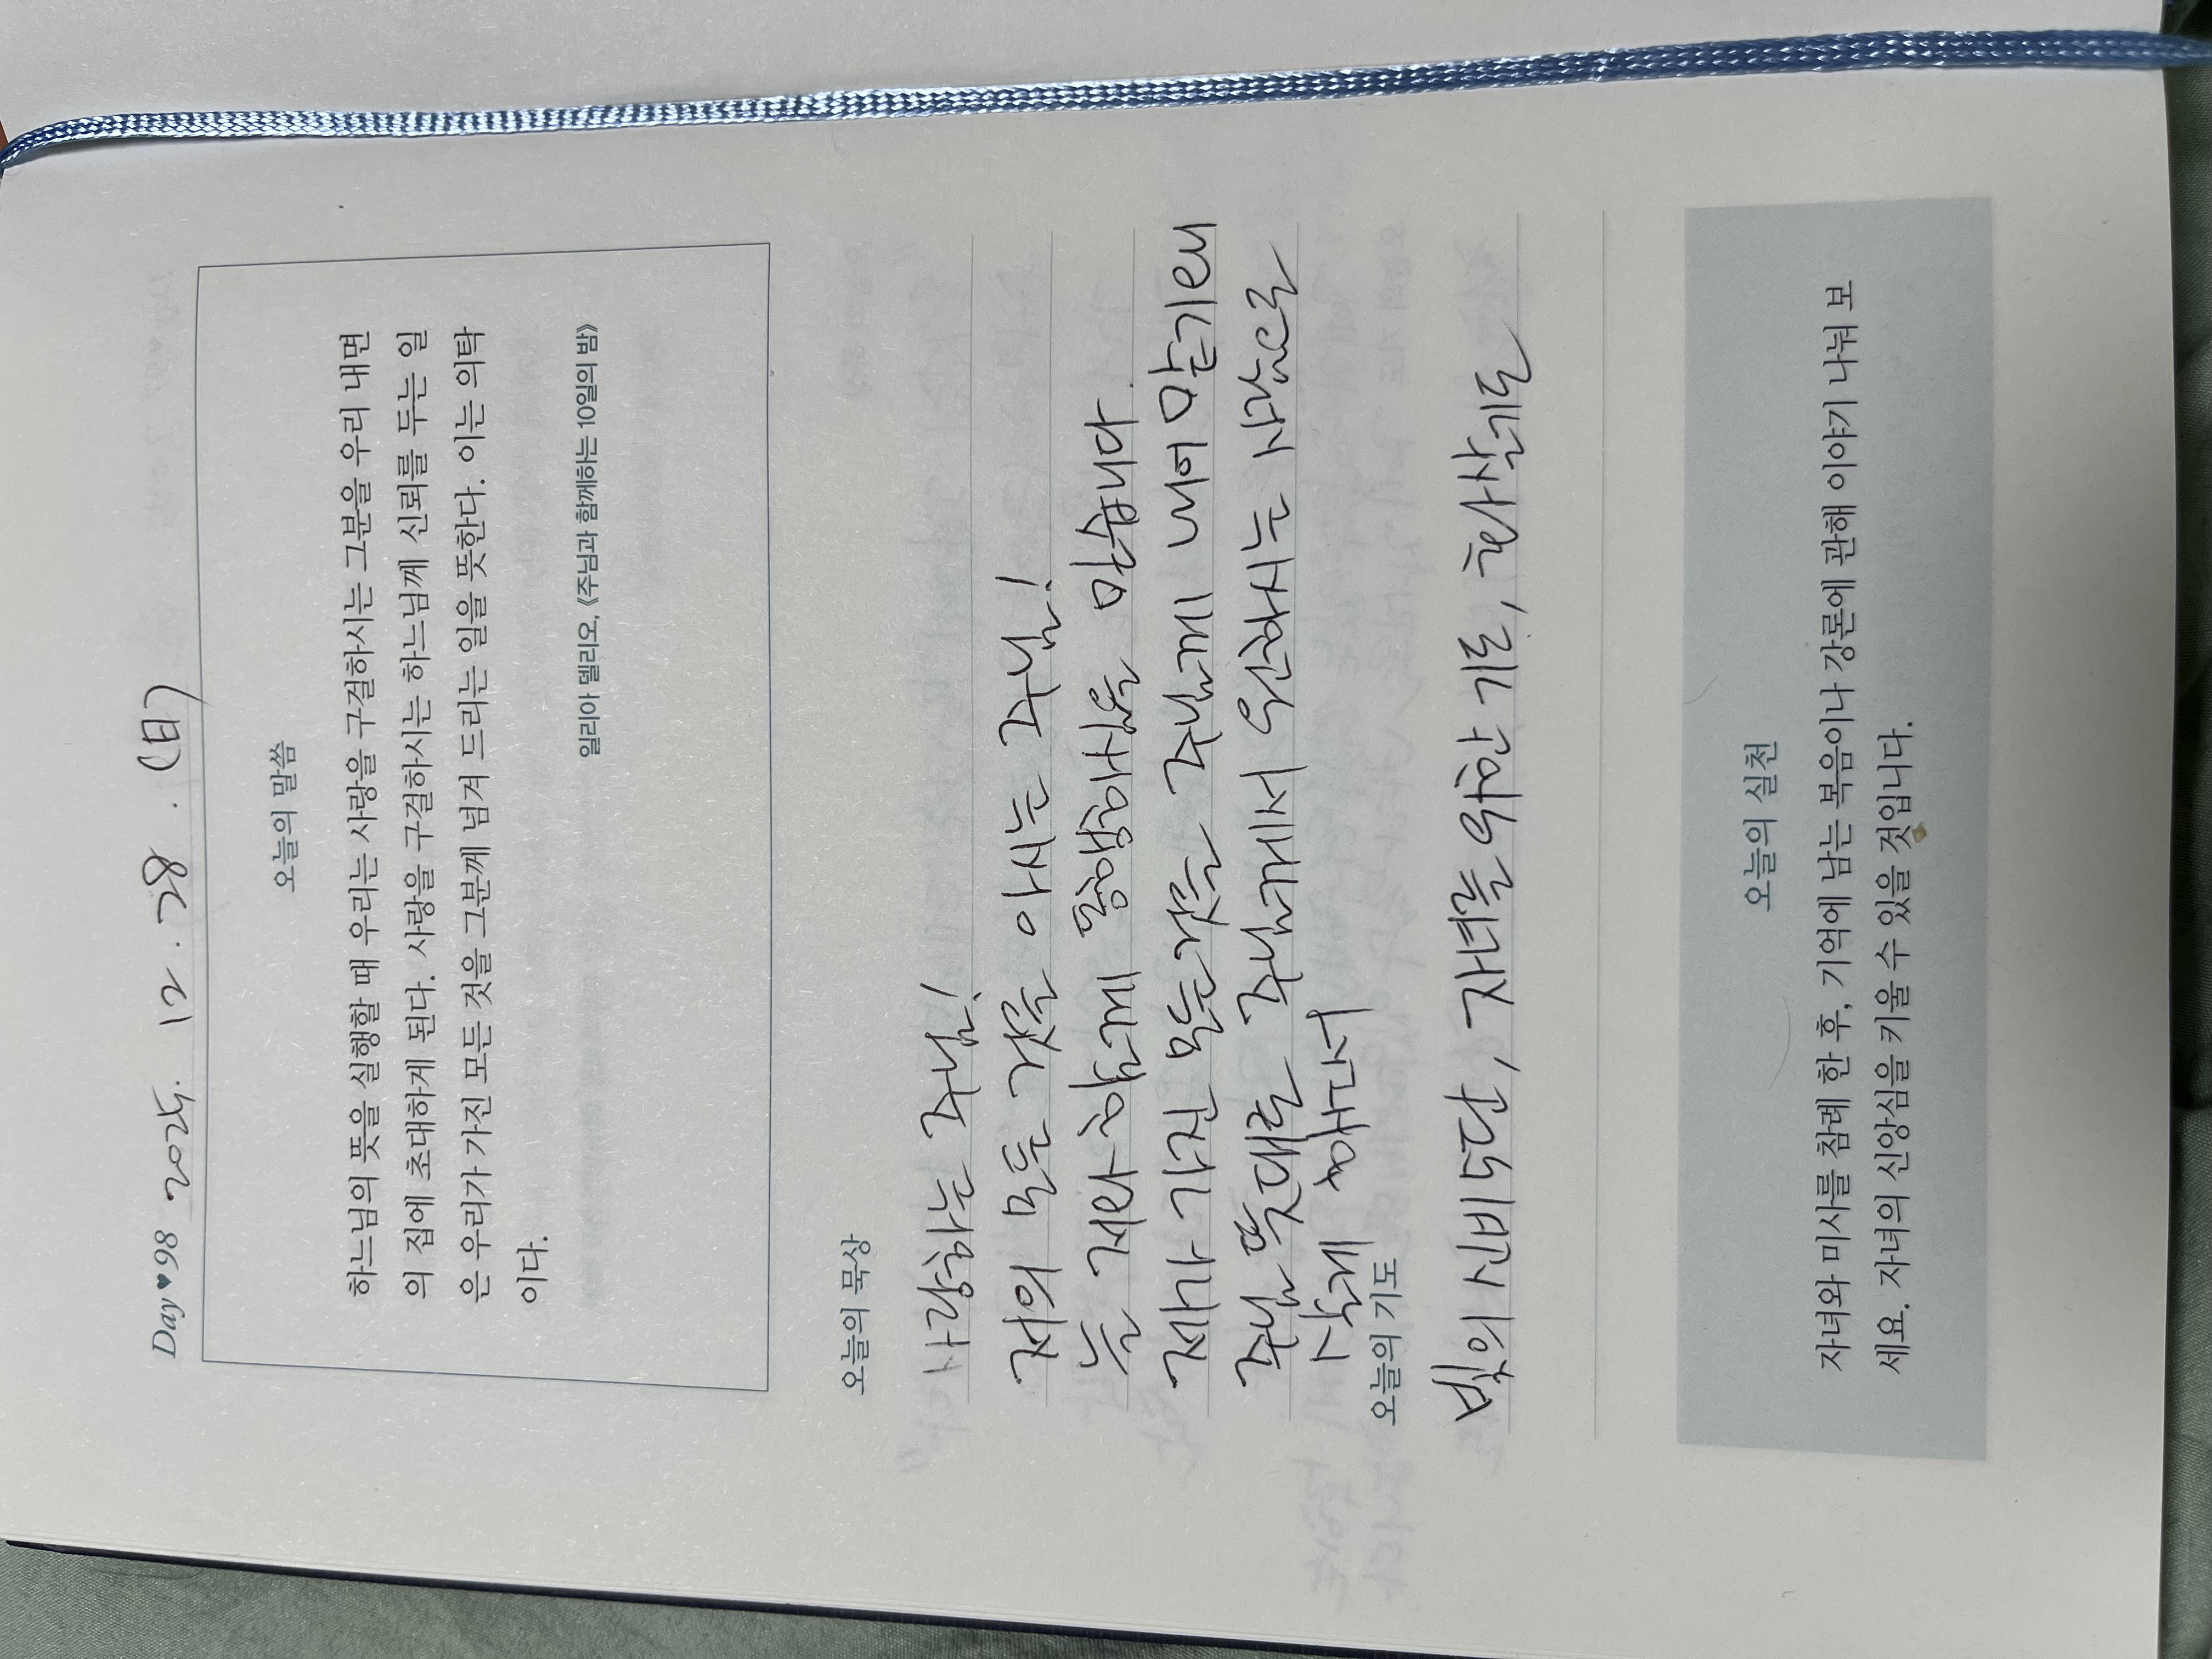 Day♥98 2025. 12. 28. (日)
오늘의 말씀
하느님의 뜻을 실행할 때 우리는 사랑을 구걸하시는 그분을 우리 내면
의 집에 초대하게 된다. 사랑을 구걸하시는 하느님께 신뢰를 두는 일
은 우리가 가진 모든 것을 그분께 넘겨 드리는 일을 뜻한다. 이는 의탁
이다.
일리아 델리오, 《주님과 함께하는 10일의 밤》
오늘의 묵상
사랑하는 주님!
저의 모든 것을 아시는 주님!
늘 저와 함께 동행하심을 압니다.
제가 가진 모든것을 주님께 내어 맡기오니
주님 뜻대로 주님께서 원하시는 사람으로
살게 하소서
오늘의 기도
빛의 신비 5단, 자녀를 위한 기도, 화살기도
오늘의 실천
자녀와 미사를 참례 한 후, 기억에 남는 복음이나 강론에 관해 이야기 나눠 보
세요. 자녀의 신앙심을 키울 수 있을 것입니다.